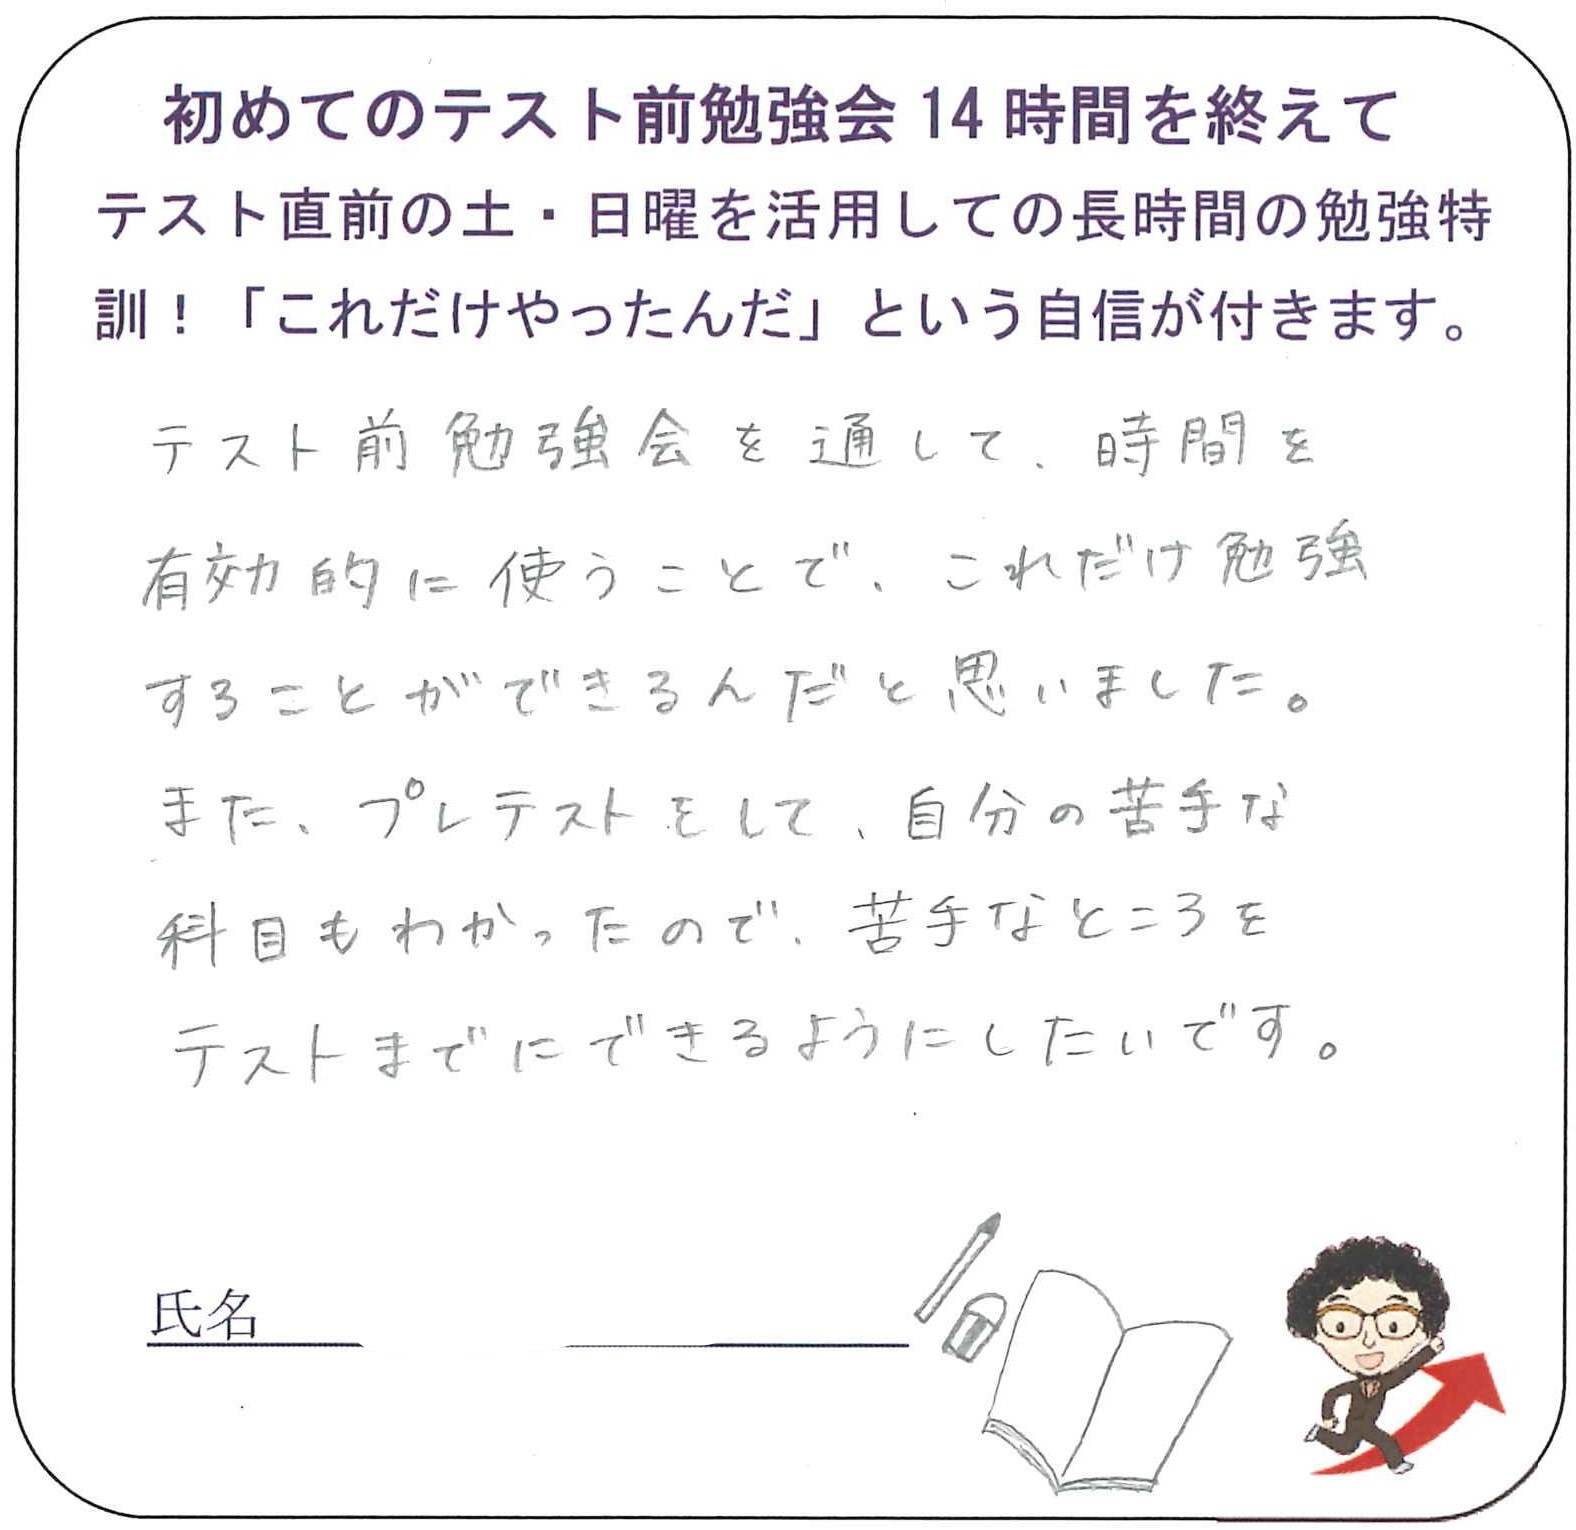 初めてのテスト前勉強会14時間を終えて
テスト直前の土・日曜を活用しての長時間の勉強特
訓！「これだけやったんだ」という自信が付きます。
テスト前勉強会を通して、時間を
有効的に使うことで、これだけ勉強
することができるんだと思いました。
また、プレテストをして、自分の苦手な
科目もわかったので、苦手なところを
テストまでにできるようにしたいです。
氏名